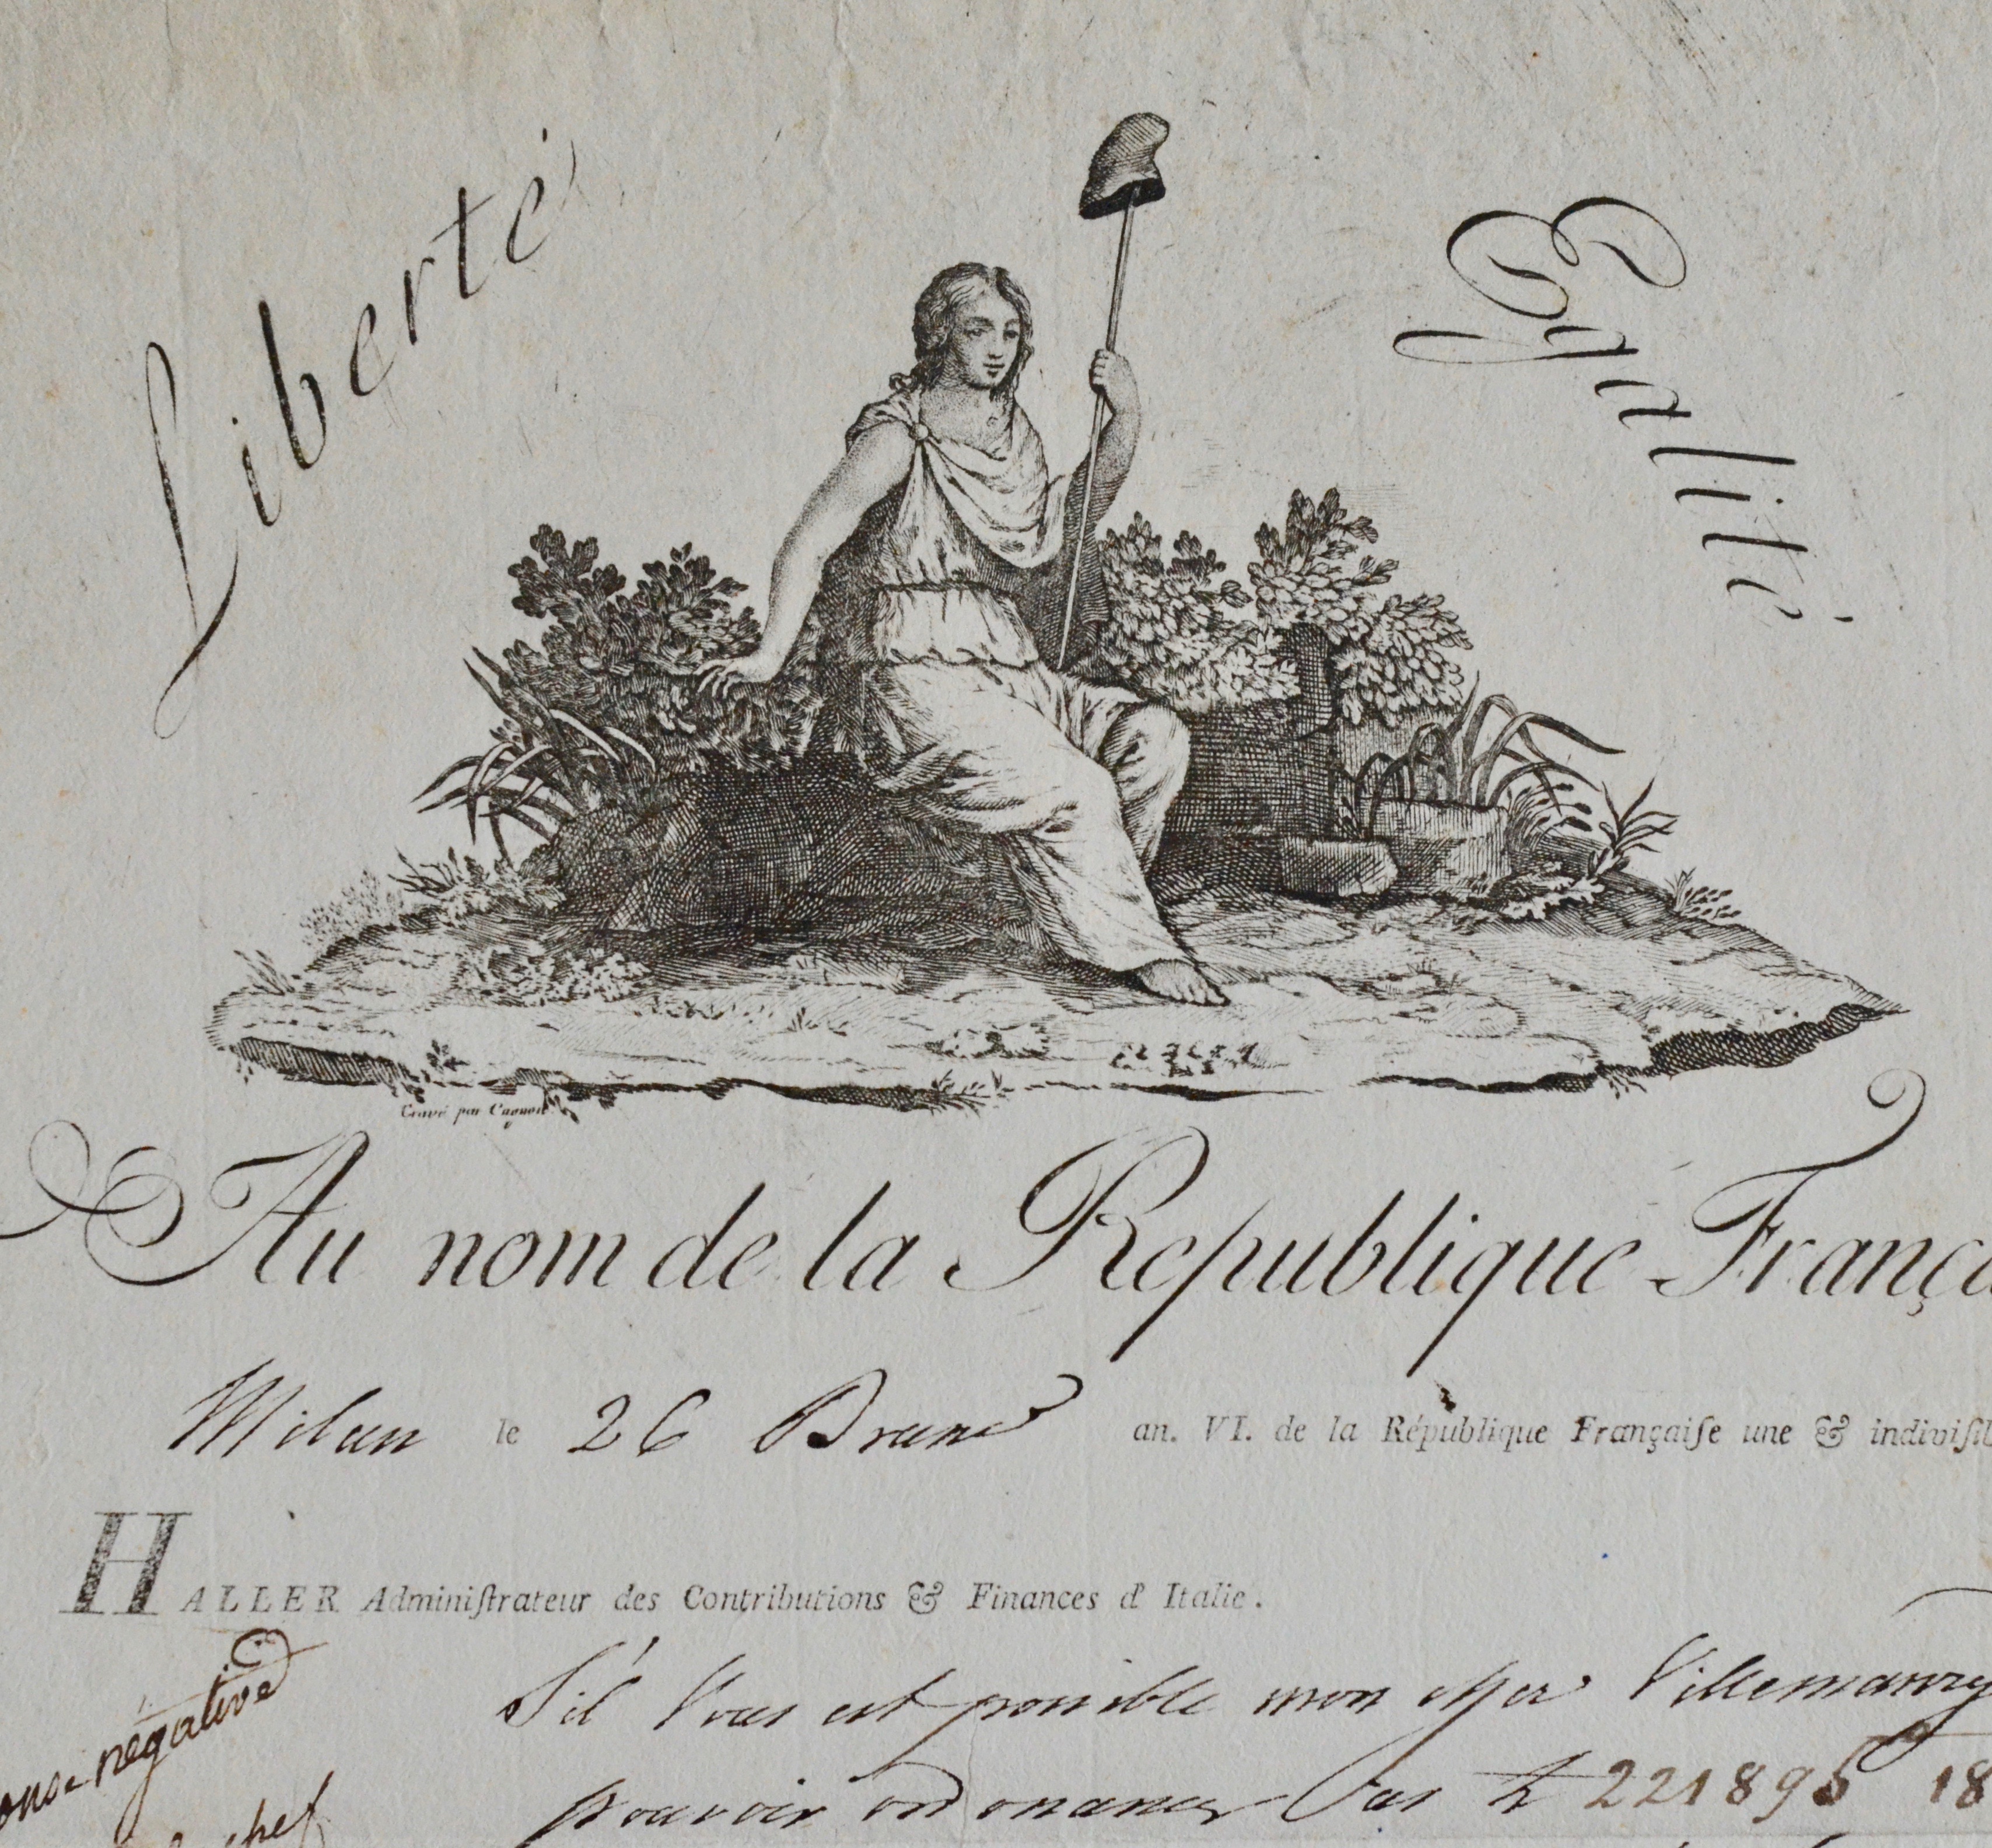 Liberté
Egalité
Gravé par Cagnoni
Au nom de la Republique França
Milan le 26 Brume an. VI. de la République Françaiſe une & indiviſib
HALLER Adminiſtrateur des Contributions & Finances d'Italie.
S'il Vous est possible mon cher Villemanzy
négative
pouvoir ordonancer 221895 18
chef